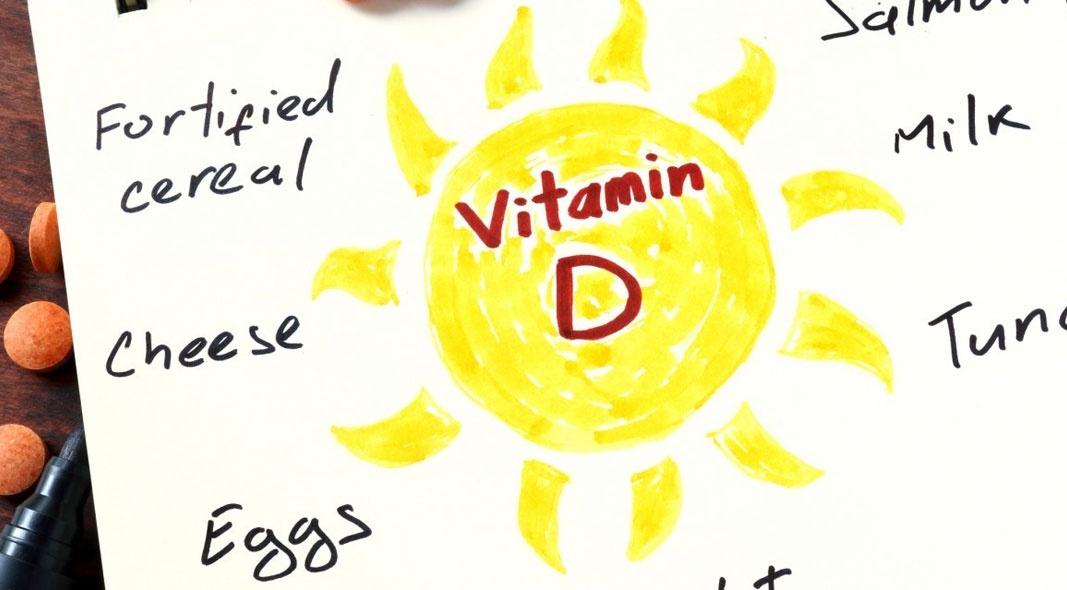 Salmon
Fortified
cereal
Milk
Vitamin
D
Cheese
Eggs